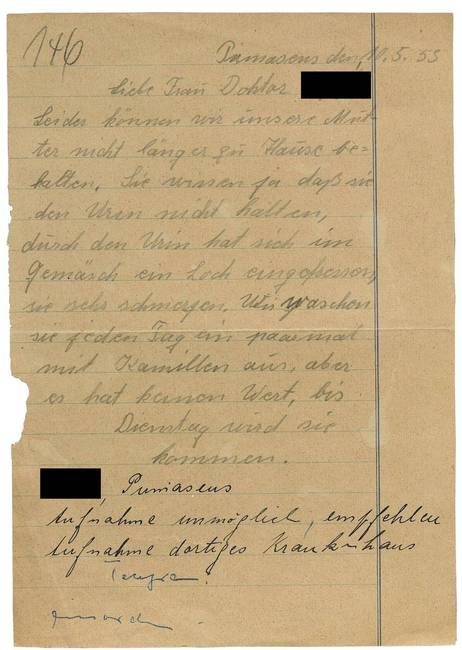 146
Pirmasens den, 10.5.53
Liebe Frau Doktor
Leider können wir unsere Mut-
ter nicht länger zu Hause be-
halten. Sie wissen ja daß sie
den Urin nicht halten,
durch den Urin hat sich im
Gemäsch ein Loch eingefressen,
sie sehr schmerzen. Wir waschen
sie jeden Tag ein paarmal
mit Kamillen aus, aber
es hat keinen Wert, bis
Dienstag wird sie
kommen.
Pirmasens
Aufnahme unmöglich, empfehlen
Aufnahme dortiges Krankenhaus